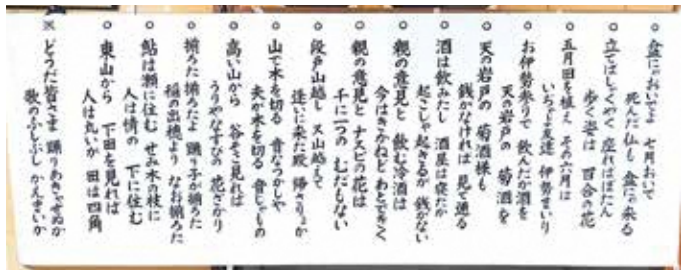 ○ 盆にゃおいでよ 七月おいて
死んだ仏も 盆にゃ来る
○ 立てばしゃくやく 座ればぼたん
歩く姿は 百合の花
○ 五月田を植え その六月は
いちど友達 伊勢まいり
○ お伊勢参りで 飲んだか酒を
天の岩戸の 菊酒を
○ 天の岩戸の 菊酒様も
銭がなければ 見て通る
○ 酒は飲みたし 酒屋は寝たか
起こしゃ起きるが 銭がない
○ 親の意見と 飲む冷酒は
今はきかねど あとできく
○ 親の意見と ナスビの花は
千に一つの むだもない
○ 段戸山越し 又山越えて
逢いに来た殿 帰さりょか
○ 山で木を切る 音なつかしや
夫が木を切る 音じゃもの
○ 高い山から 谷そこ見れば
うりやなすびの 花ざかり
○ 揃うた揃たよ 踊り子が揃うた
稲の出穂より なお揃うた
○ 鮎は瀬に住む せみ木の枝に
人は情の 下に住む
○ 東山から 下田を見れば
人は丸いが 田は四角
※ どうだ皆さま 踊りあきゃせぬか
歌のふしぶし かえまいか